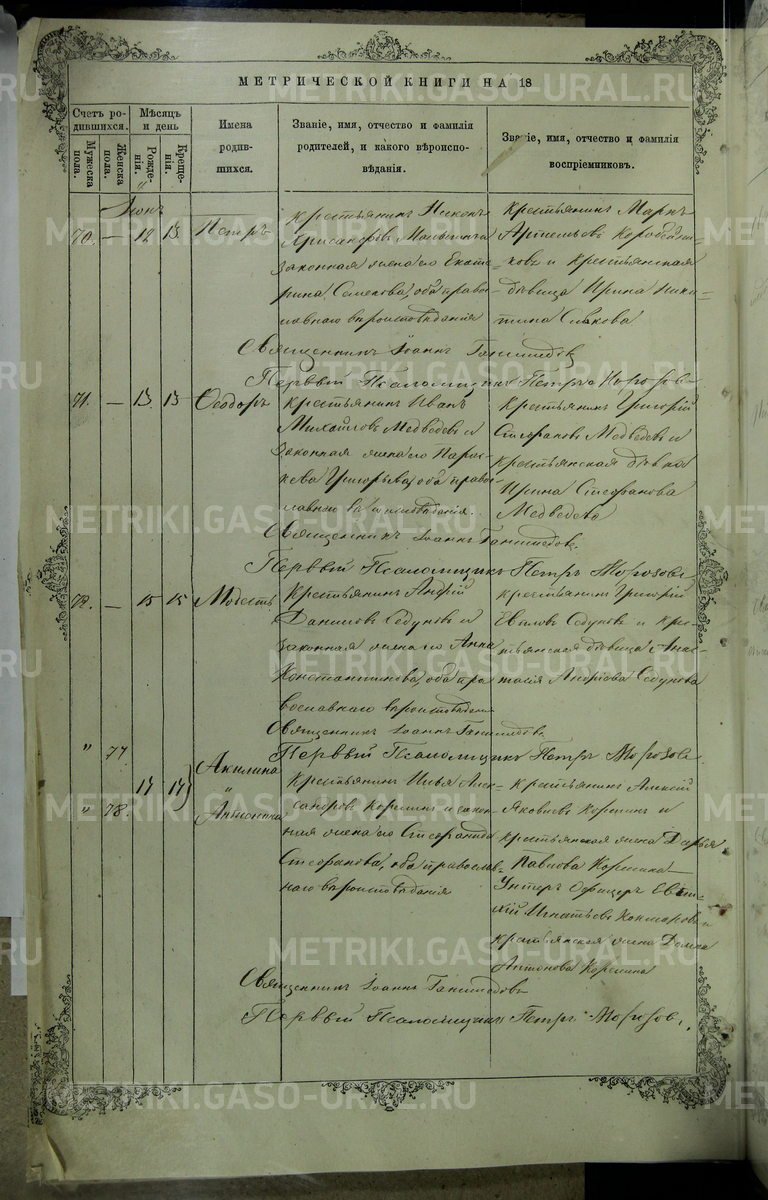 МЕТРИЧЕСКОЙ КНИГИ НА 18
Счетъ ро-
дившихся.
Мужеска
пола.
Женска
пола.
Мѣсяцъ
и день
Рожде-
нія.
Креще-
нія.
Имена
родив-
шихся.
Званіе, имя, отчество и фамилія
родителей, и какого вѣроиспо-
вѣданія.
Званіе, имя, отчество и фамилія
воспріемниковъ.
70. — 12 13 Петръ
Крестьянинъ Никонъ
законная жена его Екате-
рина Семенова, оба право-
славнаго вѣроисповѣданія
Крестьянинъ Маркъ
и крестьянская
дѣвица Ирина Ники-
тина
Священникъ Іоаннъ
Первый Псаломщикъ Петръ Морозовъ
71. — 13. 13 Ѳеодоръ
Крестьянинъ Иванъ
Михайловъ Медведевъ и
законная жена его Парас-
кева Григорьева, оба право-
славнаго вѣроисповѣданія.
Крестьянинъ Григорій
Стефановъ Медведевъ и
крестьянская дѣвка
Ирина Стефанова
Медведева
Священникъ Іоаннъ
Первый Псаломщикъ Петръ Морозовъ
72. — 15 15 Модестъ
Крестьянинъ Андрій
Даниловъ Седуновъ и
законная жена его Анна
Константинова, оба пра-
вославнаго вѣроисповѣданія
Крестьянинъ Григорій
Седуновъ и кре-
стьянская дѣвица Анас-
тасія Андреева Седунова
Священникъ Іоаннъ
Первый Псаломщикъ Петръ Морозовъ
" 77.
Акилина
17 17
"
" 78.
Крестьянинъ Илья Алек-
сандровъ Корминъ и закон-
ная жена его Стефанида
Стефанова, оба православ-
наго вѣроисповѣданія
Крестьянинъ Алексій
Яковлевъ Корминъ и
крестьянская жена Дарья
Павлова Кормина
Унтеръ Офицеръ
Игнатьевъ
крестьянская жена Домна
Антонова Кормина
Священникъ Іоаннъ
Первый Псаломщикъ Петръ Морозовъ.
METRIKI.GASO-URAL.RU